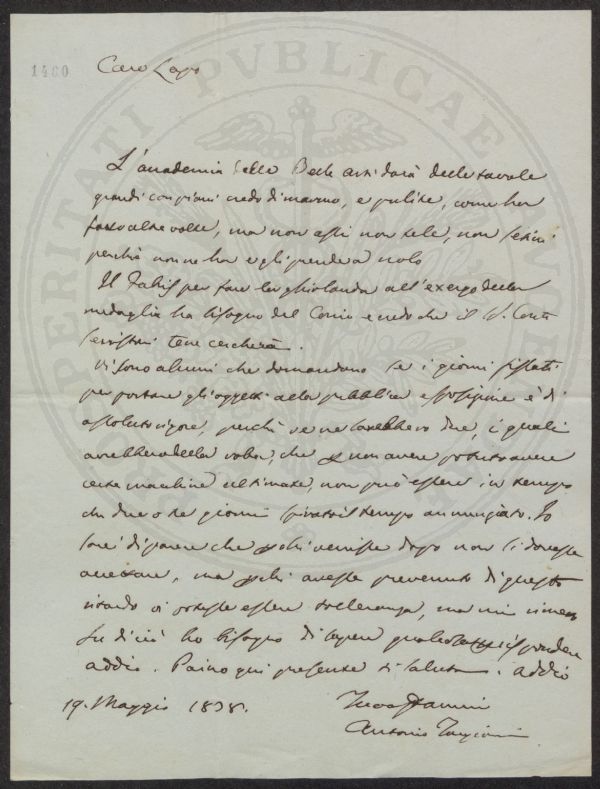 1460
Caro Lapo
L'accademia delle Belle arti darà delle tavole
grandi con piani credo di marmo, e pulite, come ha
fatto altre volte, ma non asti non tele, non
perchè non ne ha e gli prende a nolo
Il Fabris per fare la ghirlanda all'exergo della
medaglia ha bisogno del Conio e credo che il S. Conte
Serristori te ne cercherà.
Vi sono alcuni che domandano se i giorni fissati
per portare gli oggetti alla pubblica esposizione è di
assoluto rigore, perchè ve ne sarebbero due, i quali
avrebbero della roba, che p non avere potuto avere
certe macchine ultimate, non può essere in tempo
che due o tre giorni spirato il tempo annunziato. Io
sarei di parere che p chi venisse dopo non si dovesse
accettare, ma p chi avesse prevenuto di questo
ritardo vi potesse essere tolleranza, ma mi
Su di ciò ho bisogno di sapere qualcosa p rispondere
addio. Paino qui presente ti saluta. addio
19. Maggio 1838.
Antonio Targioni
PROSPERITATI PVBLICAE